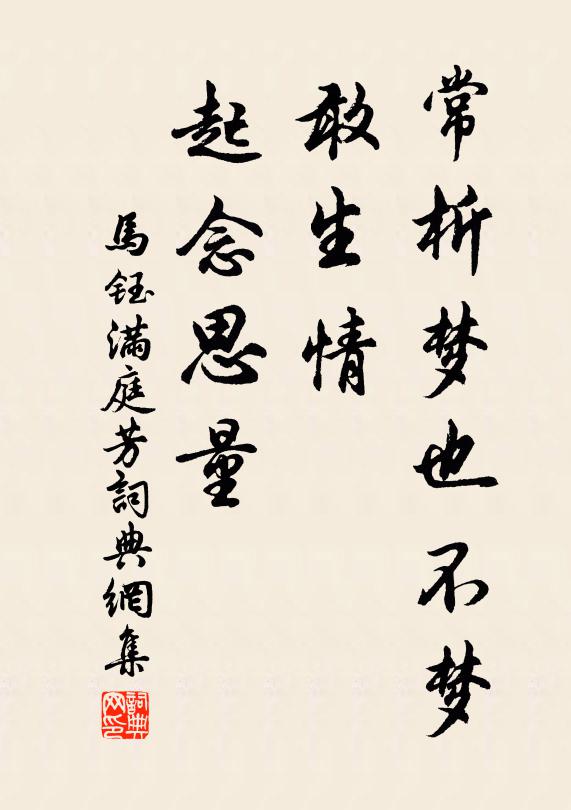 常析梦也不梦
敢生情
起念思量
馬鈺滿庭芳詞典網集
詞典网印